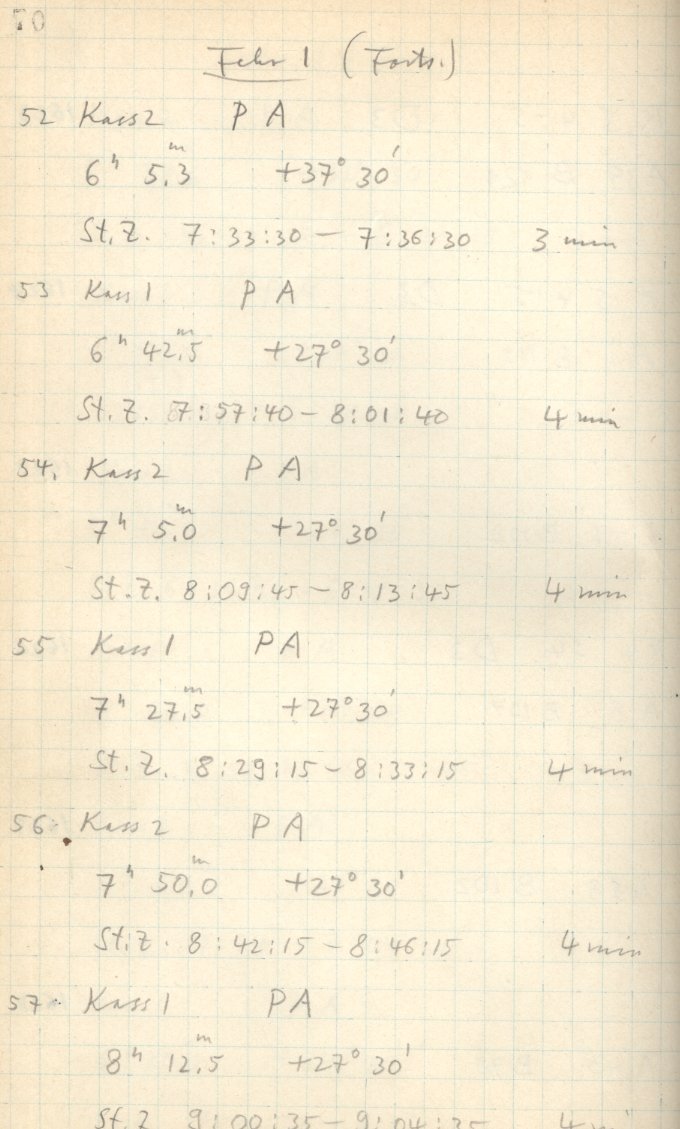 70
Febr 1 (Forts.)
52 Kass 2 P A
6ʰ 5,3ᵐ +37° 30'
St.Z. 7:33:30 – 7:36:30 3 min
53 Kass 1 P A
6ʰ 42,5ᵐ +27° 30'
St.Z. 7:57:40 – 8:01:40 4 min
54. Kass 2 P A
7ʰ 5,0ᵐ +27° 30'
St.Z. 8:09:45 – 8:13:45 4 min
55 Kass 1 P A
7ʰ 27,5ᵐ +27° 30'
St.Z. 8:29:15 – 8:33:15 4 min
56 Kass 2 P A
7ʰ 50,0ᵐ +27° 30'
St.Z. 8:42:15 – 8:46:15 4 min
57 Kass 1 P A
8ʰ 12,5ᵐ +27° 30'
St.Z 9:00:35 – 9:04:35 4 min